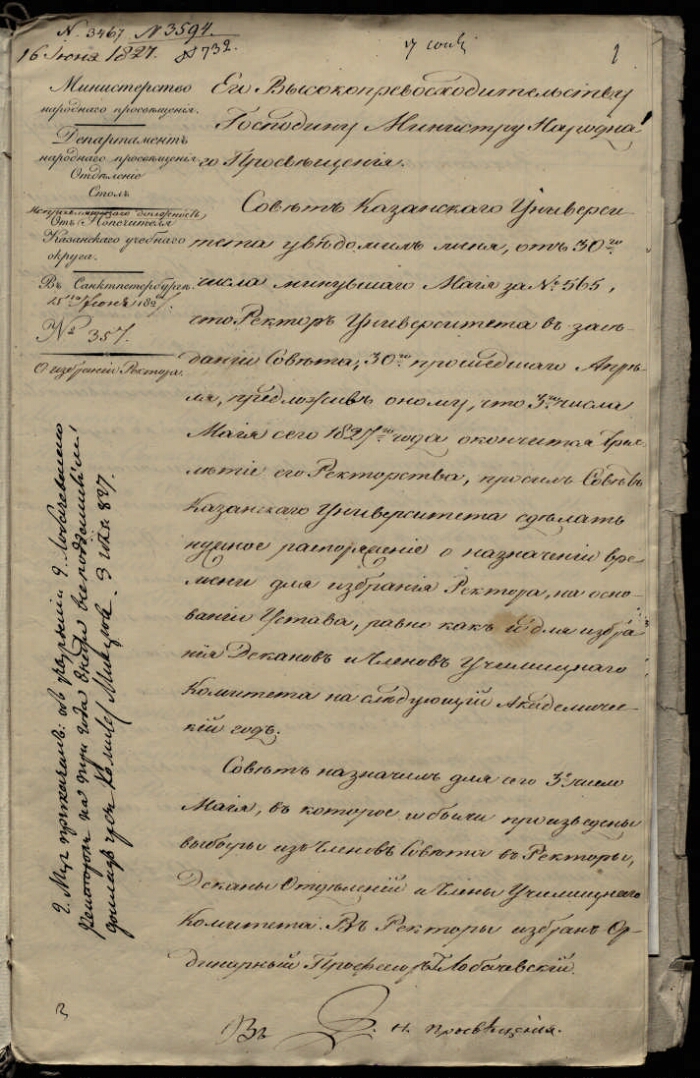 N. 3467 N 3594.
16 Июня 1827. N 732.
17 июня
1
Министерство
народнаго просвѣщенія.
Департаментъ
народнаго просвѣщенія
Отдѣленіе
Столъ
Отъ Попечителя
Казанскаго учебнаго
округа.
Въ Санктпетербургѣ.
15 Июня 1827.
№ 357.
О избраніи Ректора.
Его Высокопревосходительству
Господину Министру Народна
го Просвѣщенія.
Совѣтъ Казанскаго Универси
тета увѣдомилъ меня, отъ 30го
числа минувшаго Маія за № 565,
что Ректоръ Университета въ засѣ
даніи Совѣта, 30го прошедшаго Апрѣ
ля, предложивъ оному, что 3го числа
Маія сего 1827го года окончится трех
лѣтіе его Ректорства, просилъ Совѣтъ
Казанскаго Университета сдѣлать
нужное распоряженіе о назначеніи вре
мени для избранія Ректора, на осно
ваніи Устава, равно какъ и для избра
нія Декановъ и Членовъ Училищнаго
Комитета на слѣдующій Академиче
скій годъ.
Совѣтъ назначилъ для сего 3е число
Маія, въ которое и были произведены
выборы изъ Членовъ Совѣта въ Ректоры,
Деканы Отдѣленій и Члены Училищнаго
Комитета. Въ Ректоры избранъ Ор
динарный Профессоръ Лобачевскій.
Въ Д. Н. Просвѣщенія.
г. Лобачевскаго
Ректоромъ на три года внести
3 827.